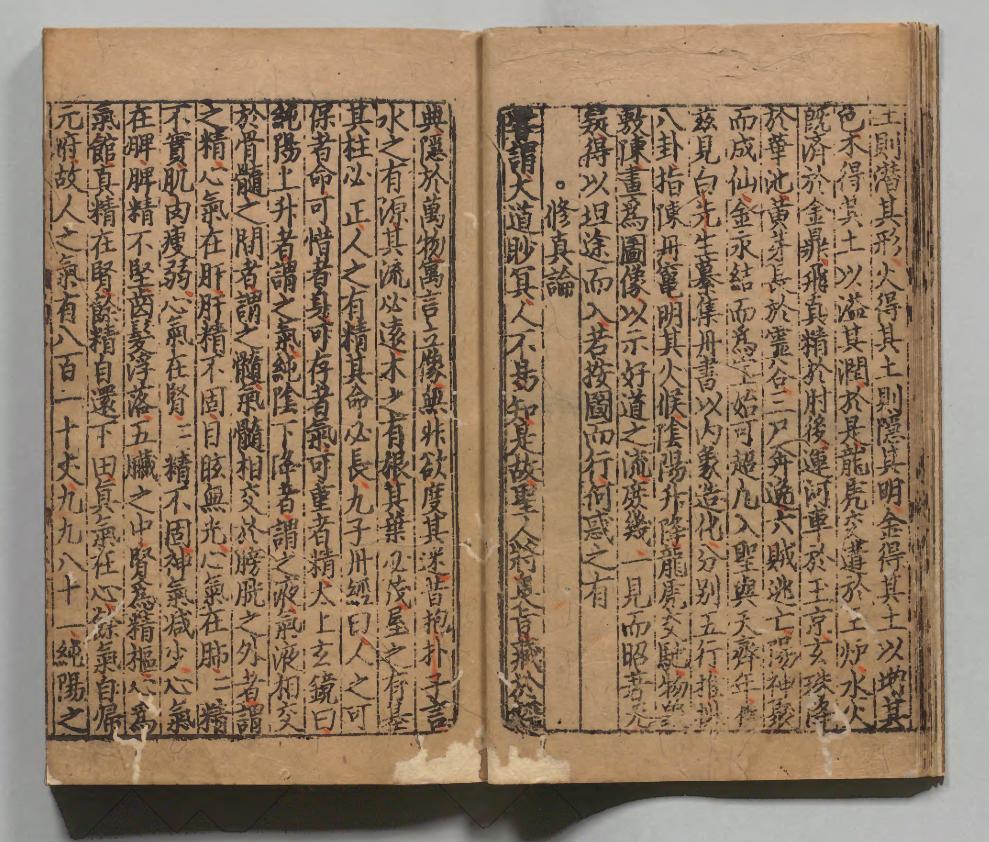 土則潜其形火得其土則隱其明金得其土以增其
色木得其土以溢其潤於是龍虎交遘於土炉水火
既済於金鼎飛真精於肘後運河車於玉京玄珠降
於華池黄芽長於霊谷三尸奔逸六賊逃亡
而成仙金永結而爲 始可超凡入聖與天齊年
玆見白先生纂集丹書以内象造化分别五行推排
八卦指陳丹竈明其火候陰陽升降龍虎交馳物
敷陳畫爲圖像以示好道之流庶幾一見而昭著无
疑得以坦途而入若按圖而行何惑之有
。修真論
嘗謂大道眇冥人不易知是故聖人將 藏於經
典隱於萬物寓言立像無非欲度其迷昔抱朴子言
水之有源其流必遠木之有根其葉必茂屋之有基
其柱必正人之有精其命必長九子丹經曰人之可
保者命可惜者身可存者氣可重者精太上玄鏡曰
純陽上升者謂之氣純陰下降者謂之液氣液相交
於骨髓之間者謂之髓氣髓相交於膀胱之外者謂
之精心氣在肝肝精不固目眩無光心氣在肺二精
不實肌肉瘦弱心氣在腎三精不固神氣减少心氣
在脾脾精不堅齒髮浮落五臟之中腎爲精樞心爲
氣館真精在腎餘精自還下田真氣在心餘氣自歸
元府故人之氣有八百一十丈九九八十一純陽之